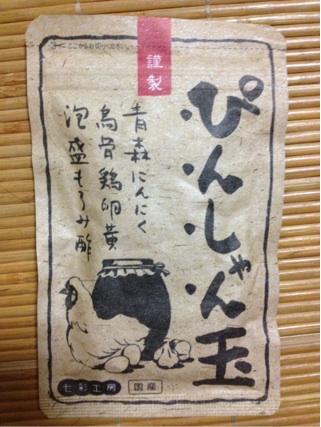 ここからお切りください。
謹製
ぴんしゃん玉
青森にんにく
烏骨鶏卵黄
泡盛もろみ酢
七彩工房
国産